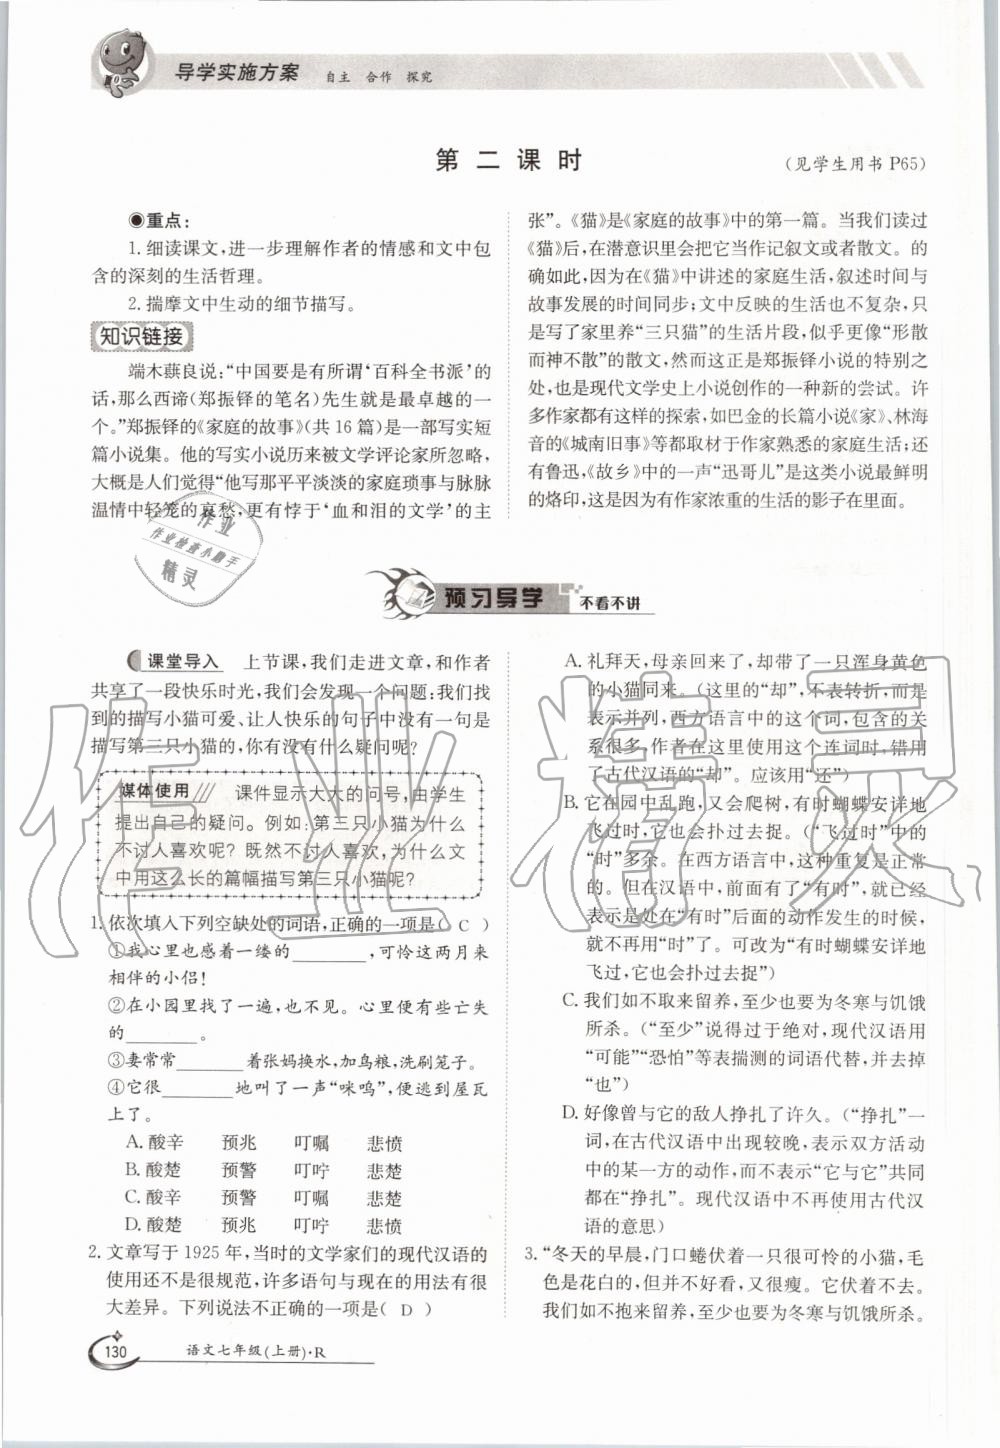 导学实施方案 自主 合作 探究
第二课时
(见学生用书 P65)
◉重点:
1. 细读课文,进一步理解作者的情感和文中包
含的深刻的生活哲理。
2. 揣摩文中生动的细节描写。
知识链接
端木蕻良说:“中国要是有所谓‘百科全书派’的
话,那么西谛(郑振铎的笔名)先生就是最卓越的一
个。”郑振铎的《家庭的故事》(共 16 篇)是一部写实短
篇小说集。他的写实小说历来被文学评论家所忽略,
大概是人们觉得“他写那平平淡淡的家庭琐事与脉脉
温情中轻笼的哀愁,更有悖于‘血和泪的文学’的主
张”。《猫》是《家庭的故事》中的第一篇。当我们读过
《猫》后,在潜意识里会把它当作记叙文或者散文。的
确如此,因为在《猫》中讲述的家庭生活,叙述时间与
故事发展的时间同步;文中反映的生活也不复杂,只
是写了家里养“三只猫”的生活片段,似乎更像“形散
而神不散”的散文,然而这正是郑振铎小说的特别之
处,也是现代文学史上小说创作的一种新的尝试。许
多作家都有这样的探索,如巴金的长篇小说《家》、林海
音的《城南旧事》等都取材于作家熟悉的家庭生活;还
有鲁迅,《故乡》中的一声“迅哥儿”是这类小说最鲜明
的烙印,这是因为有作家浓重的生活的影子在里面。
预习导学 不看不讲
课堂导入 上节课,我们走进文章,和作者
共享了一段快乐时光,我们会发现一个问题:我们找
到的描写小猫可爱、让人快乐的句子中没有一句是
描写第三只小猫的,你有没有什么疑问呢?
媒体使用 课件显示大大的问号,由学生
提出自己的疑问。例如:第三只小猫为什么
不讨人喜欢呢?既然不讨人喜欢,为什么文
中用这么长的篇幅描写第三只小猫呢?
1. 依次填入下列空缺处的词语,正确的一项是( C )
①我心里也感着一缕的________,可怜这两月来
相伴的小侣!
②在小园里找了一遍,也不见。心里便有些亡失
的________。
③妻常常________着张妈换水,加鸟粮,洗刷笼子。
④它很________地叫了一声“咪呜”,便逃到屋瓦
上了。
A. 酸辛 预兆 叮嘱 悲愤
B. 酸楚 预警 叮咛 悲楚
C. 酸辛 预警 叮嘱 悲楚
D. 酸楚 预兆 叮咛 悲愤
2. 文章写于 1925 年,当时的文学家们的现代汉语的
使用还不是很规范,许多语句与现在的用法有很
大差异。下列说法不正确的一项是( D )
A. 礼拜天,母亲回来了,却带了一只浑身黄色
的小猫同来。(这里的“却”,不表转折,而是
表示并列,西方语言中的这个词,包含的关
系很多,作者在这里使用这个连词时,错用
了古代汉语的“却”。应该用“还”)
B. 它在园中乱跑,又会爬树,有时蝴蝶安详地
飞过时,它也会扑过去捉。(“飞过时”中的
“时”多余。在西方语言中,这种重复是正常
的。但在汉语中,前面有了“有时”,就已经
表示是处在“有时”后面的动作发生的时候,
就不再用“时”了。可改为“有时蝴蝶安详地
飞过,它也会扑过去捉”)
C. 我们如不取来留养,至少也要为冬寒与饥饿
所杀。(“至少”说得过于绝对,现代汉语用
“可能”“恐怕”等表揣测的词语代替,并去掉
“也”)
D. 好像曾与它的敌人挣扎了许久。(“挣扎”一
词,在古代汉语中出现较晚,表示双方活动
中的某一方的动作,而不是“它与它”共同
都在“挣扎”。现代汉语中不再使用古代汉
语的意思)
3. “冬天的早晨,门口蜷伏着一只很可怜的小猫,毛
色是花白的,但并不好看,又很瘦。它伏着不去。
我们如不抱来留养,至少也要为冬寒与饥饿所杀。
130 语文七年级(上册)·R
作业
作业检查小助手
精灵
作业精灵